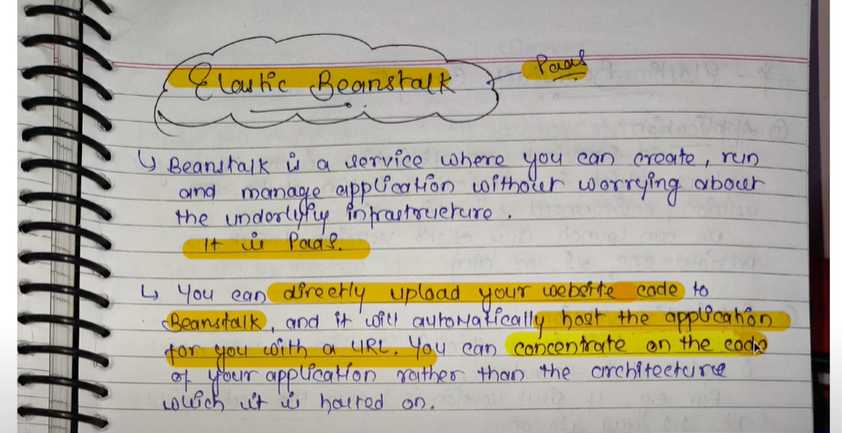 Elastic Beanstalk
PaaS
↳ Beanstalk is a service where you can create, run
and manage application without worrying about
the underlyfy infrastructure.
It is PaaS.
↳ You can directly upload your website code to
Beanstalk, and it will automatically host the application
for you with a URL. You can concentrate on the code
of your application rather than the architecture
which it is hosted on.